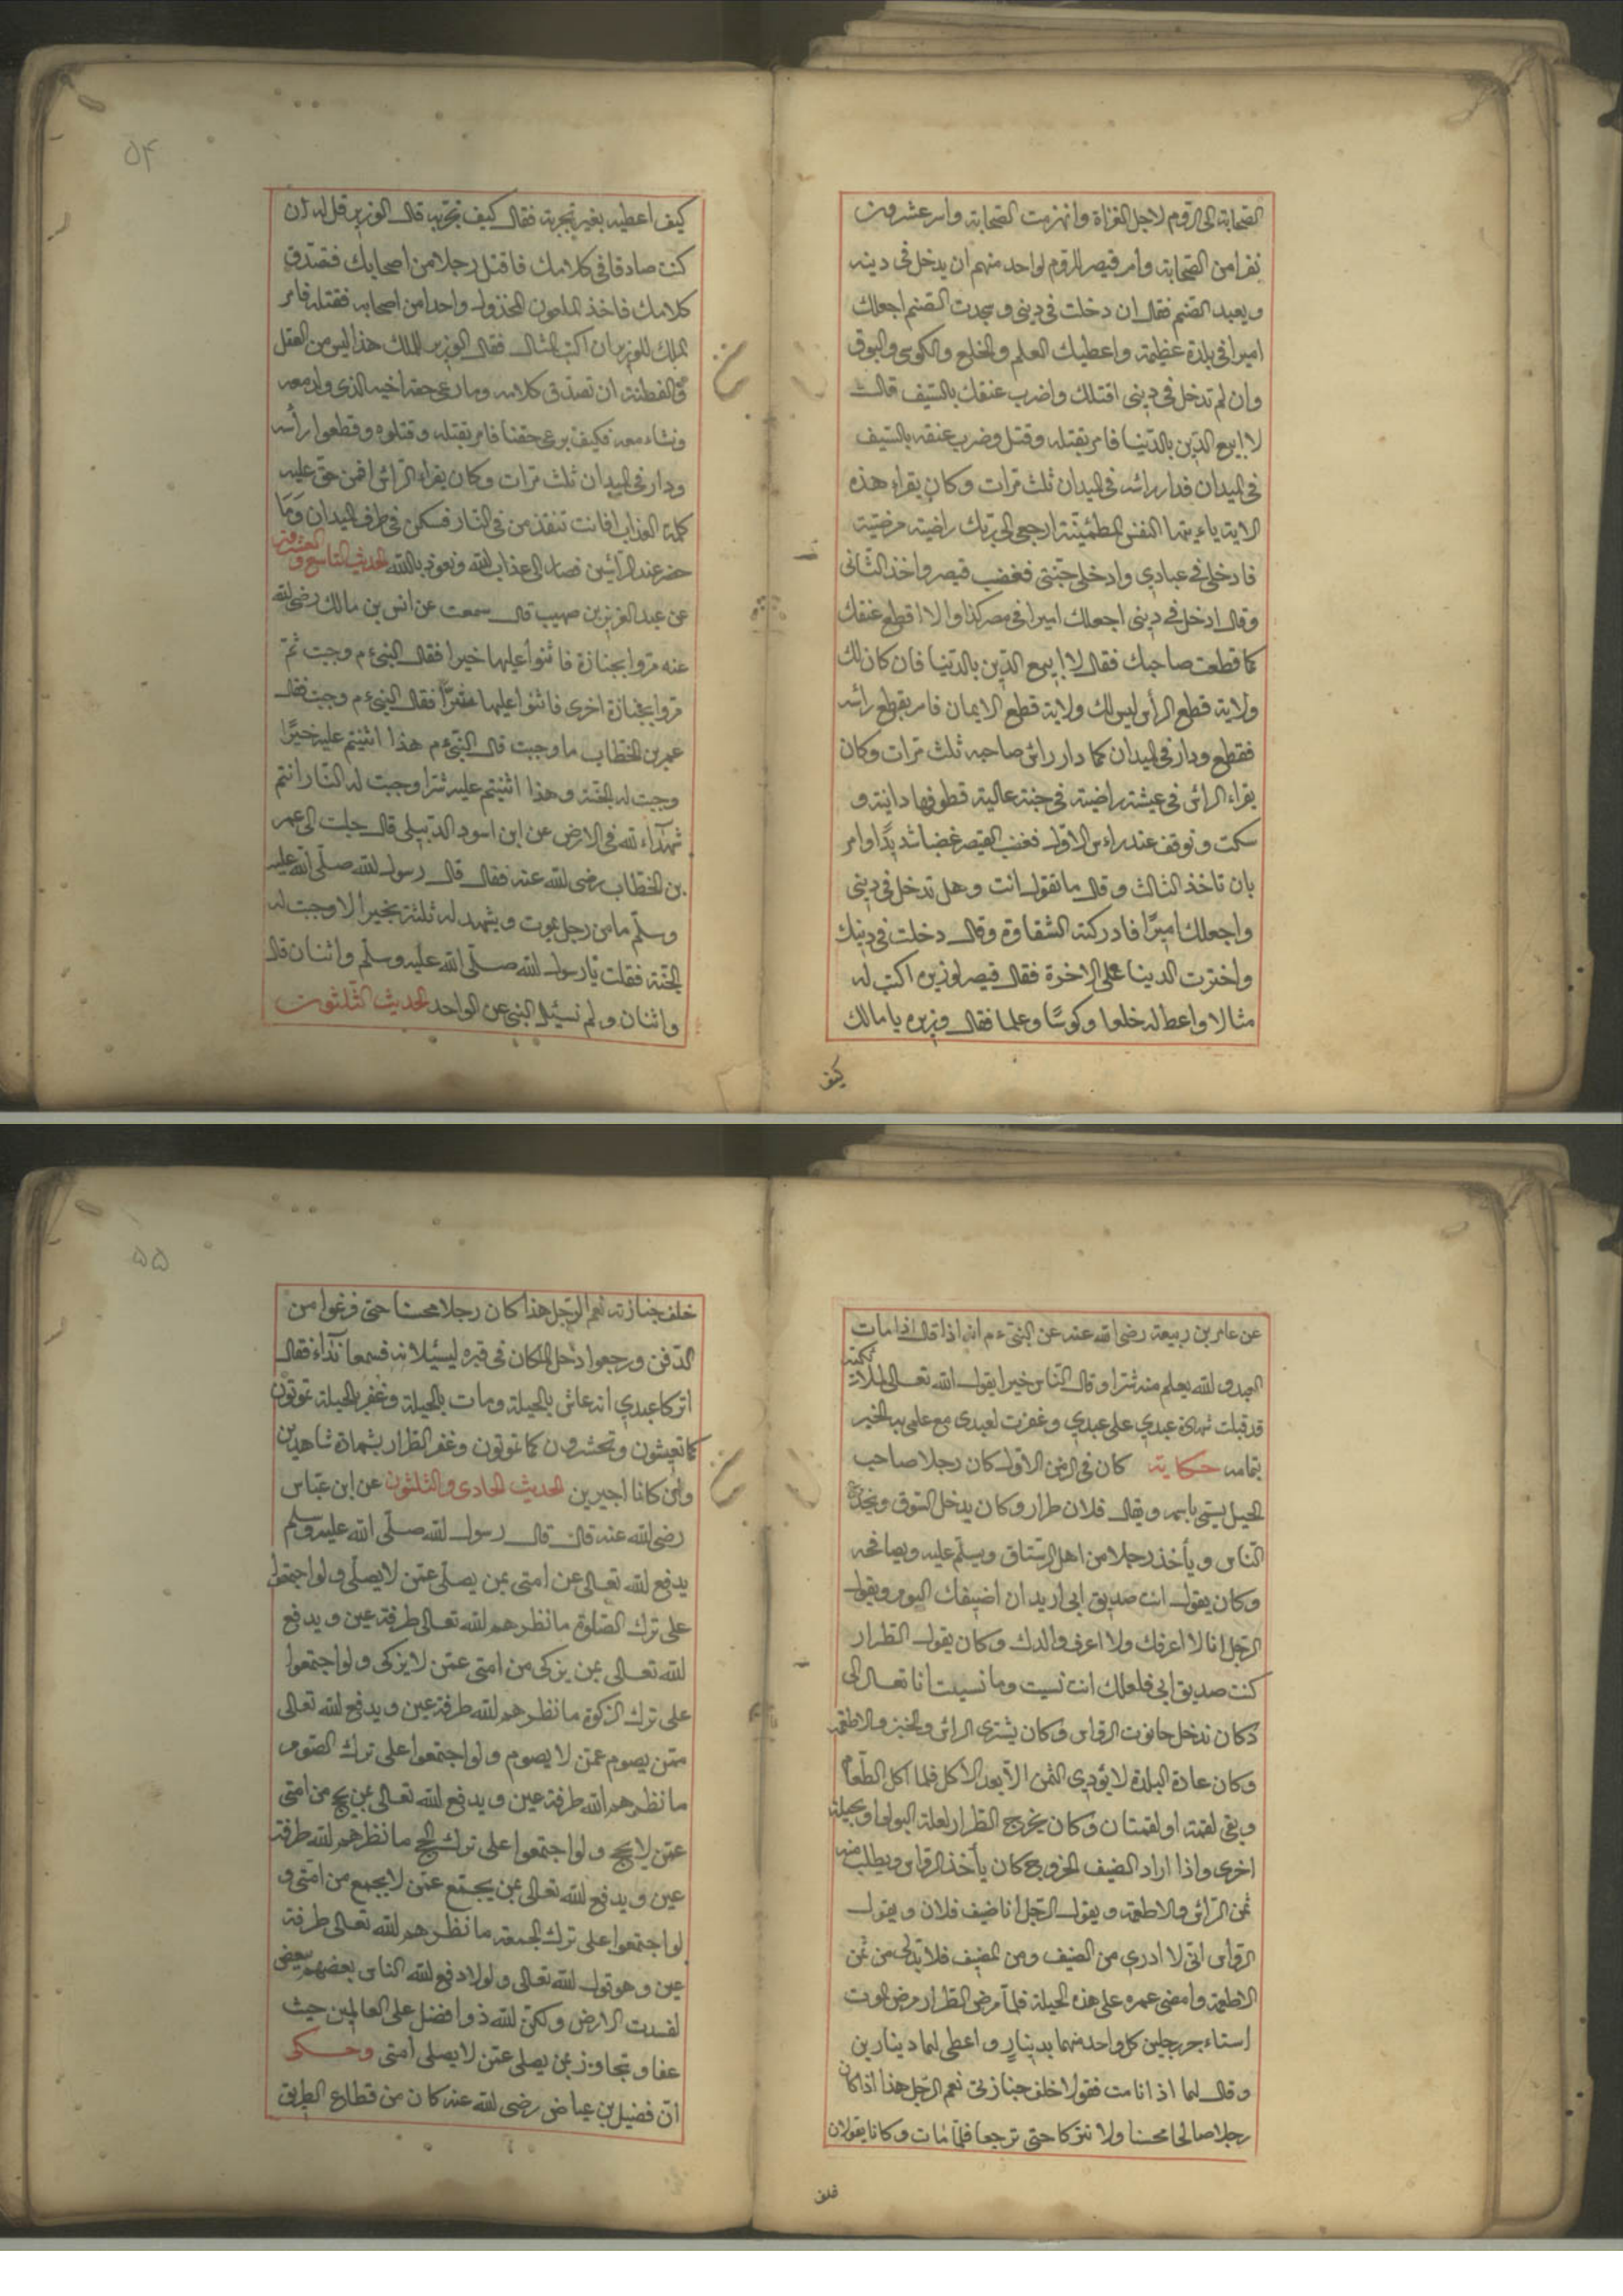 الصحابة الى الروم لاجل الغزاة وانهزمت الصحابة واسر عشرون
نفرا من الصحابة وامر قيصر الروم لواحد منهم ان يدخل فى دينه
ويعبد الصنم فقال ان دخلت فى دينى وسجدت الصنم اجعلك
اميرا فى بلدة عظيمة واعطيك العلم والخلع والكوس والبوق
وان لم تدخل فى دينى اقتلك واضرب عنقك بالسيف قال
لا ابيع الدين بالدنيا فامر بقتله وقتل وضرب عنقه بالسيف
فى الميدان فدار راسه فى الميدان ثلث مرات وكان يقراء هذه
الاية ياءيتها النفس المطمئنة ارجعى الى ربك راضية مرضية
فادخلى فى عبادي وادخلى جنتى فغضب قيصر واخذ الثانى
وقال ادخل فى دينى اجعلك اميرا فى مصر كذا والا اقطع عنقك
كما قطعت صاحبك فقال لا ابيع الدين بالدنيا فان كان لك
ولاية قطع الرأس ليس لك ولاية قطع الايمان فامر بقطع رأسه
فقطع ودار فى الميدان كما دار راس صاحبه ثلث مرات وكان
يقراء الراس فى عيشة راضية فى جنة عالية قطوفها دانية و
سكت وتوقف عند راءس الاول فغضب القيصر غضبا شديدًا وامر
بان تاخذ الثالث وقال ما تقول انت وهل تدخل فى دينى
واجعلك اميرًا فادركته الشقاوة وقال دخلت فى دينك
واخترت الدينا على الاخرة فقال قيصر لوزيره اكتب له
مثالا واعط له خلعا وكوسًا وعلما فقال وزيره يا مالك
كيف
۵۴
كيف اعطيه بغير تجربة فقال كيف نجربه قال الوزير قل له ان
كنت صادقا فى كلامك فاقتل رجلا من اصحابك فنصدق
كلامك فاخذ الملعون المخذول واحدا من اصحابه فقتله فامر
الملك للوزير بان اكتب المثال فقال الوزير للملك هذا ليس من العقل
والفطنة ان تصدق كلامه وما رعى حق اخيه الذى ولد معه
ونشاء معه فكيف يرعى حقنا فامر بقتله وقتلوه وقطعوا رأسه
ودار فى الميدان ثلث مرات وكان يقراء الراس افمن حق عليه
كلمة العذاب افانت تنقذ من فى النار فسكن فى طرف الميدان وما
حضر عند الرأسين فصار الى عذاب الله ونعوذ بالله الحديث التاسع والعشرون
عن عبد العزيز بن صهيب قال سمعت عن انس بن مالك رضى الله
عنه مروا بجنازة فاثنوا عليها خيرا فقال النبى ءم وجبت ثم
مروا بجنازة اخرى فاثنوا عليها شرًا فقال النبى ءم وجبت فقال
عمر بن الخطاب ما وجبت قال النبى ءم هذا اثنيتم عليه خيرًا
وجبت له الجنة وهذا اثنيتم عليه شرا وجبت له النار انتم
شهداء لله فى الارض عن ابن اسود الديلى قال جلت الى عمر
بن الخطاب رضى الله عنه فقال قال رسول الله صلى الله عليه
وسلم ما من رجل يموت ويشهد له ثلثة بخير الا وجبت له
الجنة فقلت يا رسول الله صلى الله عليه وسلم واثنان قال
واثنان ولم نسئل النبى عن الواحد الحديث الثلثون
عن عامر بن ربيعة رضى الله عنه عن النبى ءم انه اذا قال اذا مات
العبد والله يعلم منه شرا وقال الناس خيرا يقول الله تعالى لملائكته
قد قبلت شهادة عبدي على عبدي وغفرت لعبدى مع علمى به الخبر
بتمامه حكاية كان فى الزمن الاول كان رجلا صاحب
الحيل يسمى باسمه ويقال فلان طرار وكان يدخل السوق ويخدع
الناس ويأخذ رجلا من اهل الرستاق ويسلم عليه ويصافحه
وكان يقول انت صديق ابى اريد ان اضيفك اليوم ويقول
الرجل انا لا اعرفك ولا اعرف والدك وكان يقول الطرار
كنت صديق ابى فلعلك انت نسيت وما نسيت انا تعال الى
دكان ندخل حانوت الرواس وكان يشترى الراس والخبز والاطعمة
وكان عادة البلدة لا يؤدى الثمن الا بعد الاكل فلما اكل الطعام
وبقى لقمة او لقمتان وكان يخرج الطرار لعلة البول او بحيلة
اخرى واذا اراد الضيف الخروج كان يأخذ الرواس ويطلب منه
ثمن الراس والاطعمة ويقول الرجل انا ضيف فلان ويقول
الرواس انى لا ادرى من الضيف ومن المضيف فلا بد لى من ثمن
الاطعمة وامضى عمره على هذه الحيلة فلما مرض الطرار مرض الموت
استاءجر رجلين كل واحد منهما بدينار واعطى لهما دينارين
وقال لهما اذا انا مت فقولا خلف جنازتى نعم الرجل هذا اذا كان
رجلا صالحا محسنا ولا تتركا حتى ترجعا فلما مات وكانا يقولان
خلف
۵۵
خلف جنازته نعم الرجل هذا كان رجلا محسنا حتى فرغوا من
الدفن ورجعوا دخل الملكان فى قبره ليسئلانه فسمعا نداء فقال
اتركا عبدي انه عاش بالحيلة ومات بالحيلة وغفر بالحيلة تموتون
كما تعيشون وتحشرون كما تموتون وغفر الطرار بشهادة شاهدين
وان كانا اجيرين الحديث الحادى والثلثون عن ابن عباس
رضى الله عنه قال قال رسول الله صلى الله عليه وسلم
يدفع الله تعالى عن امتى بمن يصلى عمن لا يصلى ولو اجتمعوا
على ترك الصلوة ما نظرهم الله تعالى طرفة عين ويدفع
الله تعالى بمن يزكى من امتى عمن لا يزكى ولو اجتمعوا
على ترك الزكوة ما نظرهم الله طرفة عين ويدفع الله تعالى
ممن يصوم عمن لا يصوم ولو اجتمعوا على ترك الصوم
ما نظرهم الله طرفة عين ويدفع الله تعالى بمن يحج من امتى
عمن لا يحج ولو اجتمعوا على ترك الحج ما نظرهم الله طرفة
عين ويدفع الله تعالى بمن يجتمع عمن لا يجمع من امتى و
لو اجتمعوا على ترك الجمعة ما نظرهم الله تعالى طرفة
عين وهو قول الله تعالى ولولا دفع الله الناس بعضهم ببعض
لفسدت الارض ولكن الله ذوا فضل على العالمين حيث
عفا وتجاوز بمن يصلى عمن لا يصلى امتى وحكى
ان فضيل بن عياض رضى الله عنه كان من قطاع الطريق